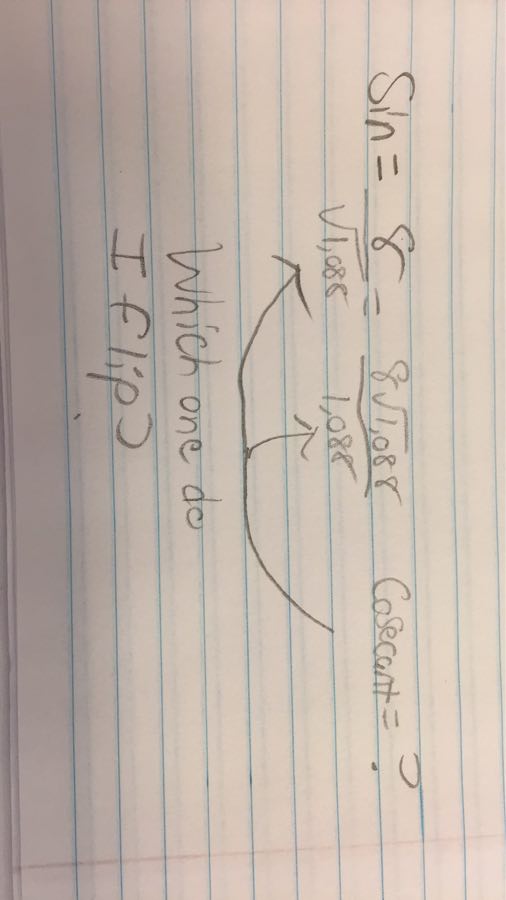 Sin = 8/√1,088 = 8√1,088/1,088 Cosecant = ?
Which one do
I flip?